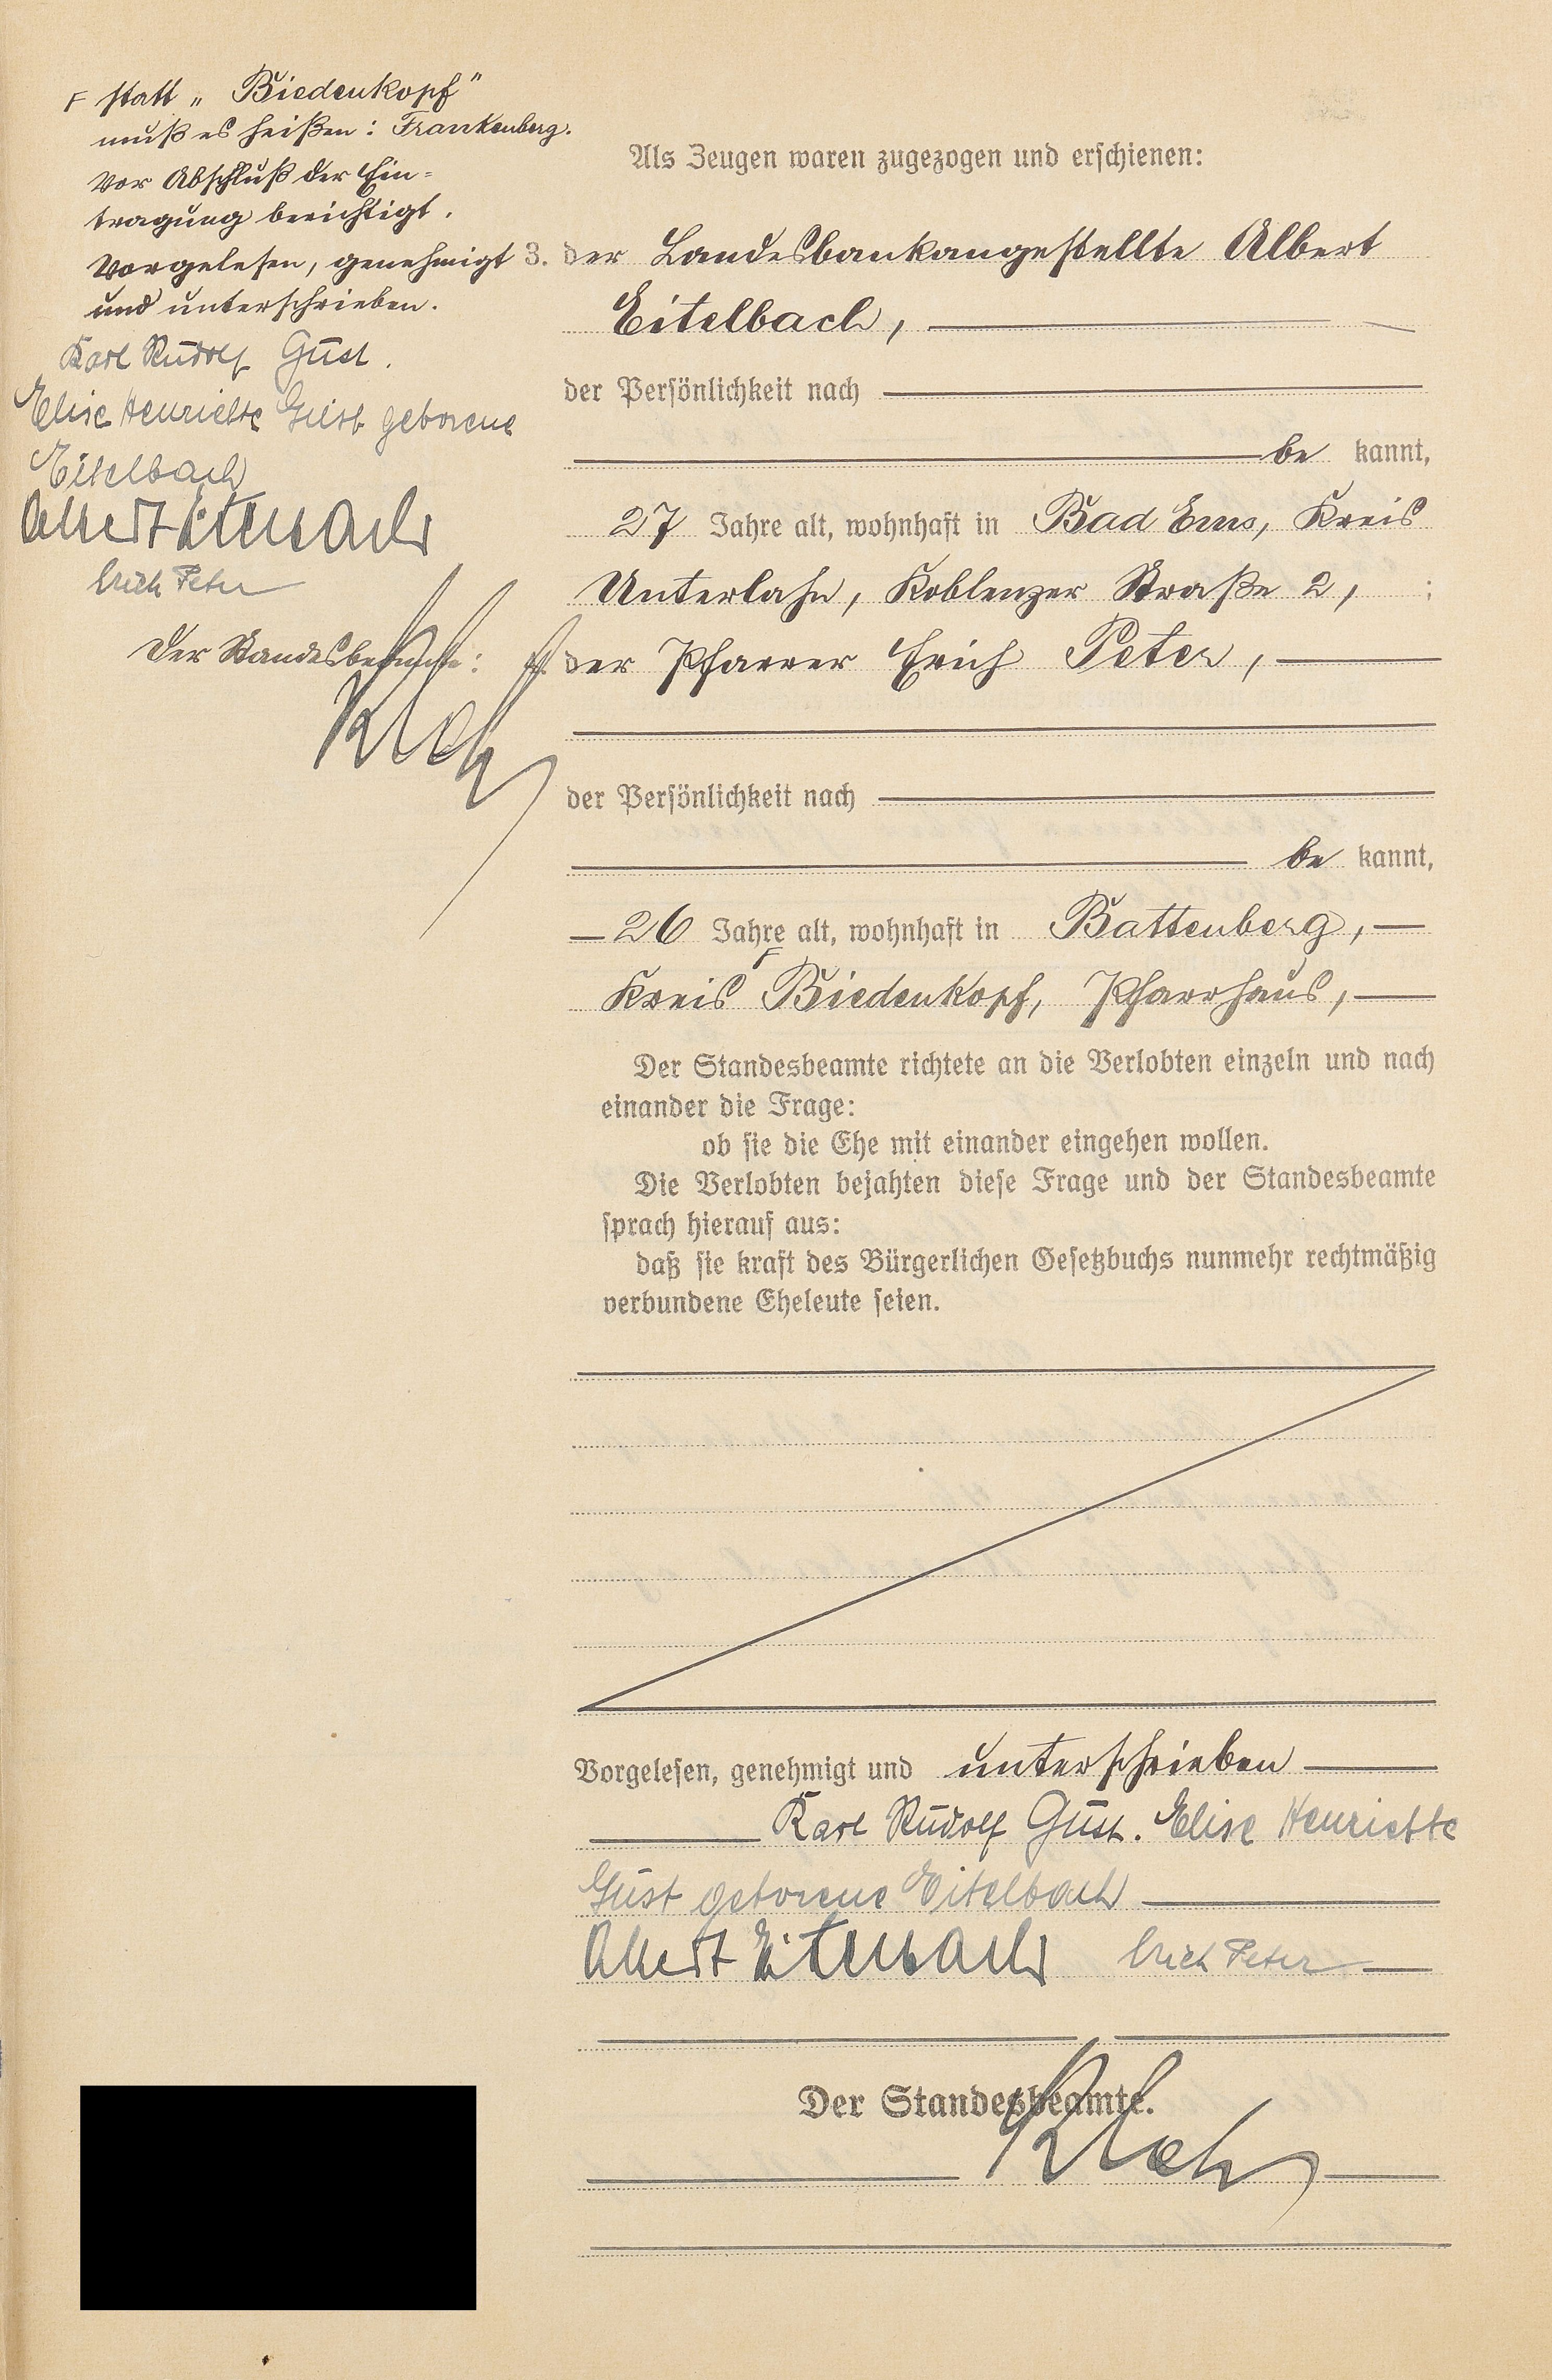 F statt „Biedenkopf"
muß es heißen: Frankenberg.
Vor Abschluß der Ein=
tragung berichtigt.
Vorgelesen, genehmigt
und unterschrieben.
Karl Rudolf Güst.
Elise Henriette Güst geborene
Eitelbach
Albert Eitelbach
Erich Peter
Der Standesbeamte:
Als Zeugen waren zugezogen und erschienen:
3. der Landesbankangestellte Albert
Eitelbach,
der Persönlichkeit nach
be kannt,
27 Jahre alt, wohnhaft in Bad Ems, Kreis
Unterlahn, Koblenzer Straße 2, ;
4. der Pfarrer Erich Peter,
der Persönlichkeit nach
be kannt,
26 Jahre alt, wohnhaft in Battenberg,
Kreis F Biedenkopf, Pfarrhaus,
Der Standesbeamte richtete an die Verlobten einzeln und nach
einander die Frage:
ob sie die Ehe mit einander eingehen wollen.
Die Verlobten bejahten diese Frage und der Standesbeamte
sprach hierauf aus:
daß sie kraft des Bürgerlichen Gesetzbuchs nunmehr rechtmäßig
verbundene Eheleute seien.
Vorgelesen, genehmigt und unterschrieben
Karl Rudolf Güst. Elise Henriette
Güst geborene Eitelbach
Albert Eitelbach Erich Peter
Der Standesbeamte.